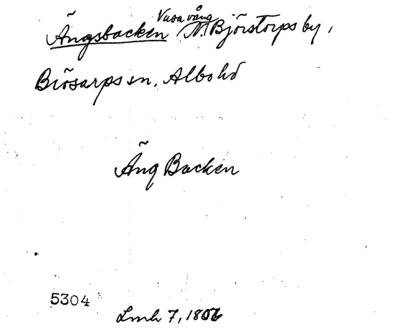 Vasavång
Ängsbacken N. Björstorps by,
Brösarps sn, Albo hd
Äng Backen
5304
Lmh 7, 1806